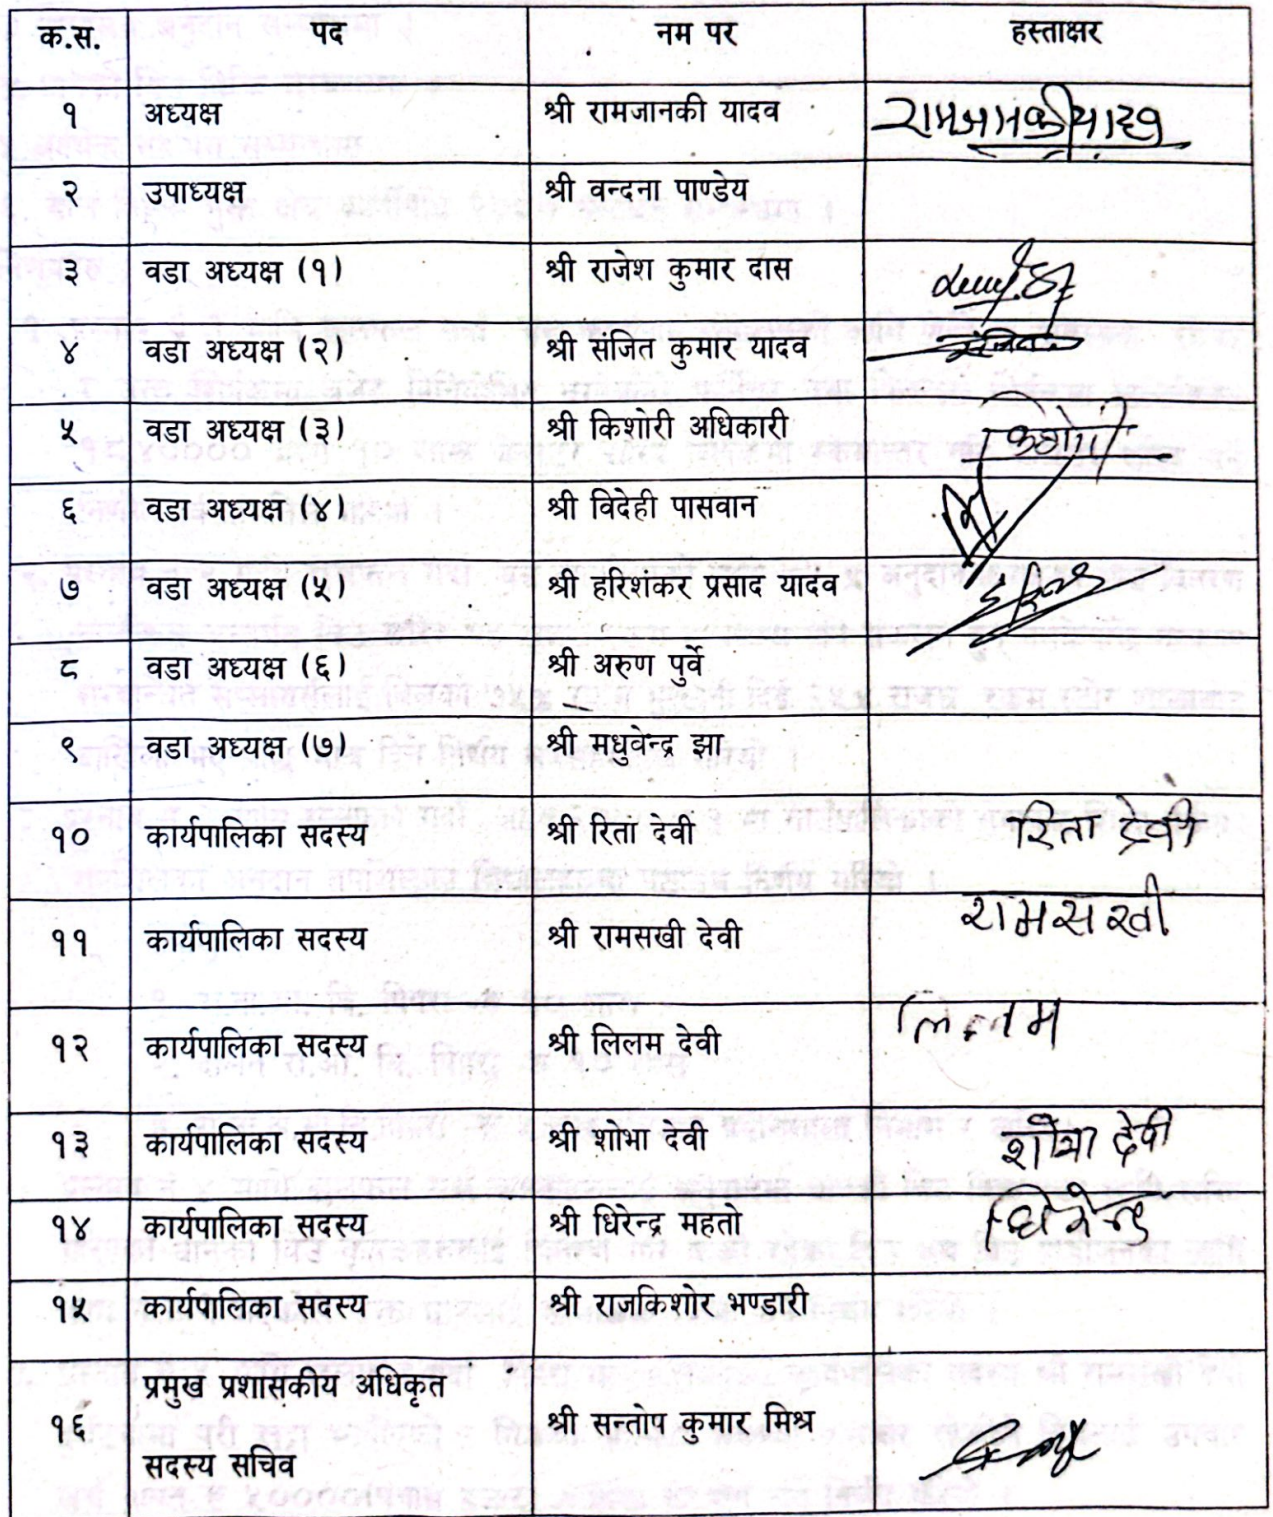 क.स. पद नम पर हस्ताक्षर
१ अध्यक्ष श्री रामजानकी यादव रामजानकी यादव
२ उपाध्यक्ष श्री वन्दना पाण्डेय
३ वडा अध्यक्ष (१) श्री राजेश कुमार दास
४ वडा अध्यक्ष (२) श्री संजित कुमार यादव
५ वडा अध्यक्ष (३) श्री किशोरी अधिकारी
६ वडा अध्यक्ष (४) श्री विदेही पासवान
७ वडा अध्यक्ष (५) श्री हरिशंकर प्रसाद यादव
८ वडा अध्यक्ष (६) श्री अरुण पुर्वे
९ वडा अध्यक्ष (७) श्री मधुवेन्द्र झा
१० कार्यपालिका सदस्य श्री रिता देवी रिता देवी
११ कार्यपालिका सदस्य श्री रामसखी देवी रामसखी
१२ कार्यपालिका सदस्य श्री लिलम देवी लिलम
१३ कार्यपालिका सदस्य श्री शोभा देवी शोभा देवी
१४ कार्यपालिका सदस्य श्री धिरेन्द्र महतो धिरेन्द्र
१५ कार्यपालिका सदस्य श्री राजकिशोर भण्डारी
प्रमुख प्रशासकीय अधिकृत
१६ श्री सन्तोप कुमार मिश्र
सदस्य सचिव